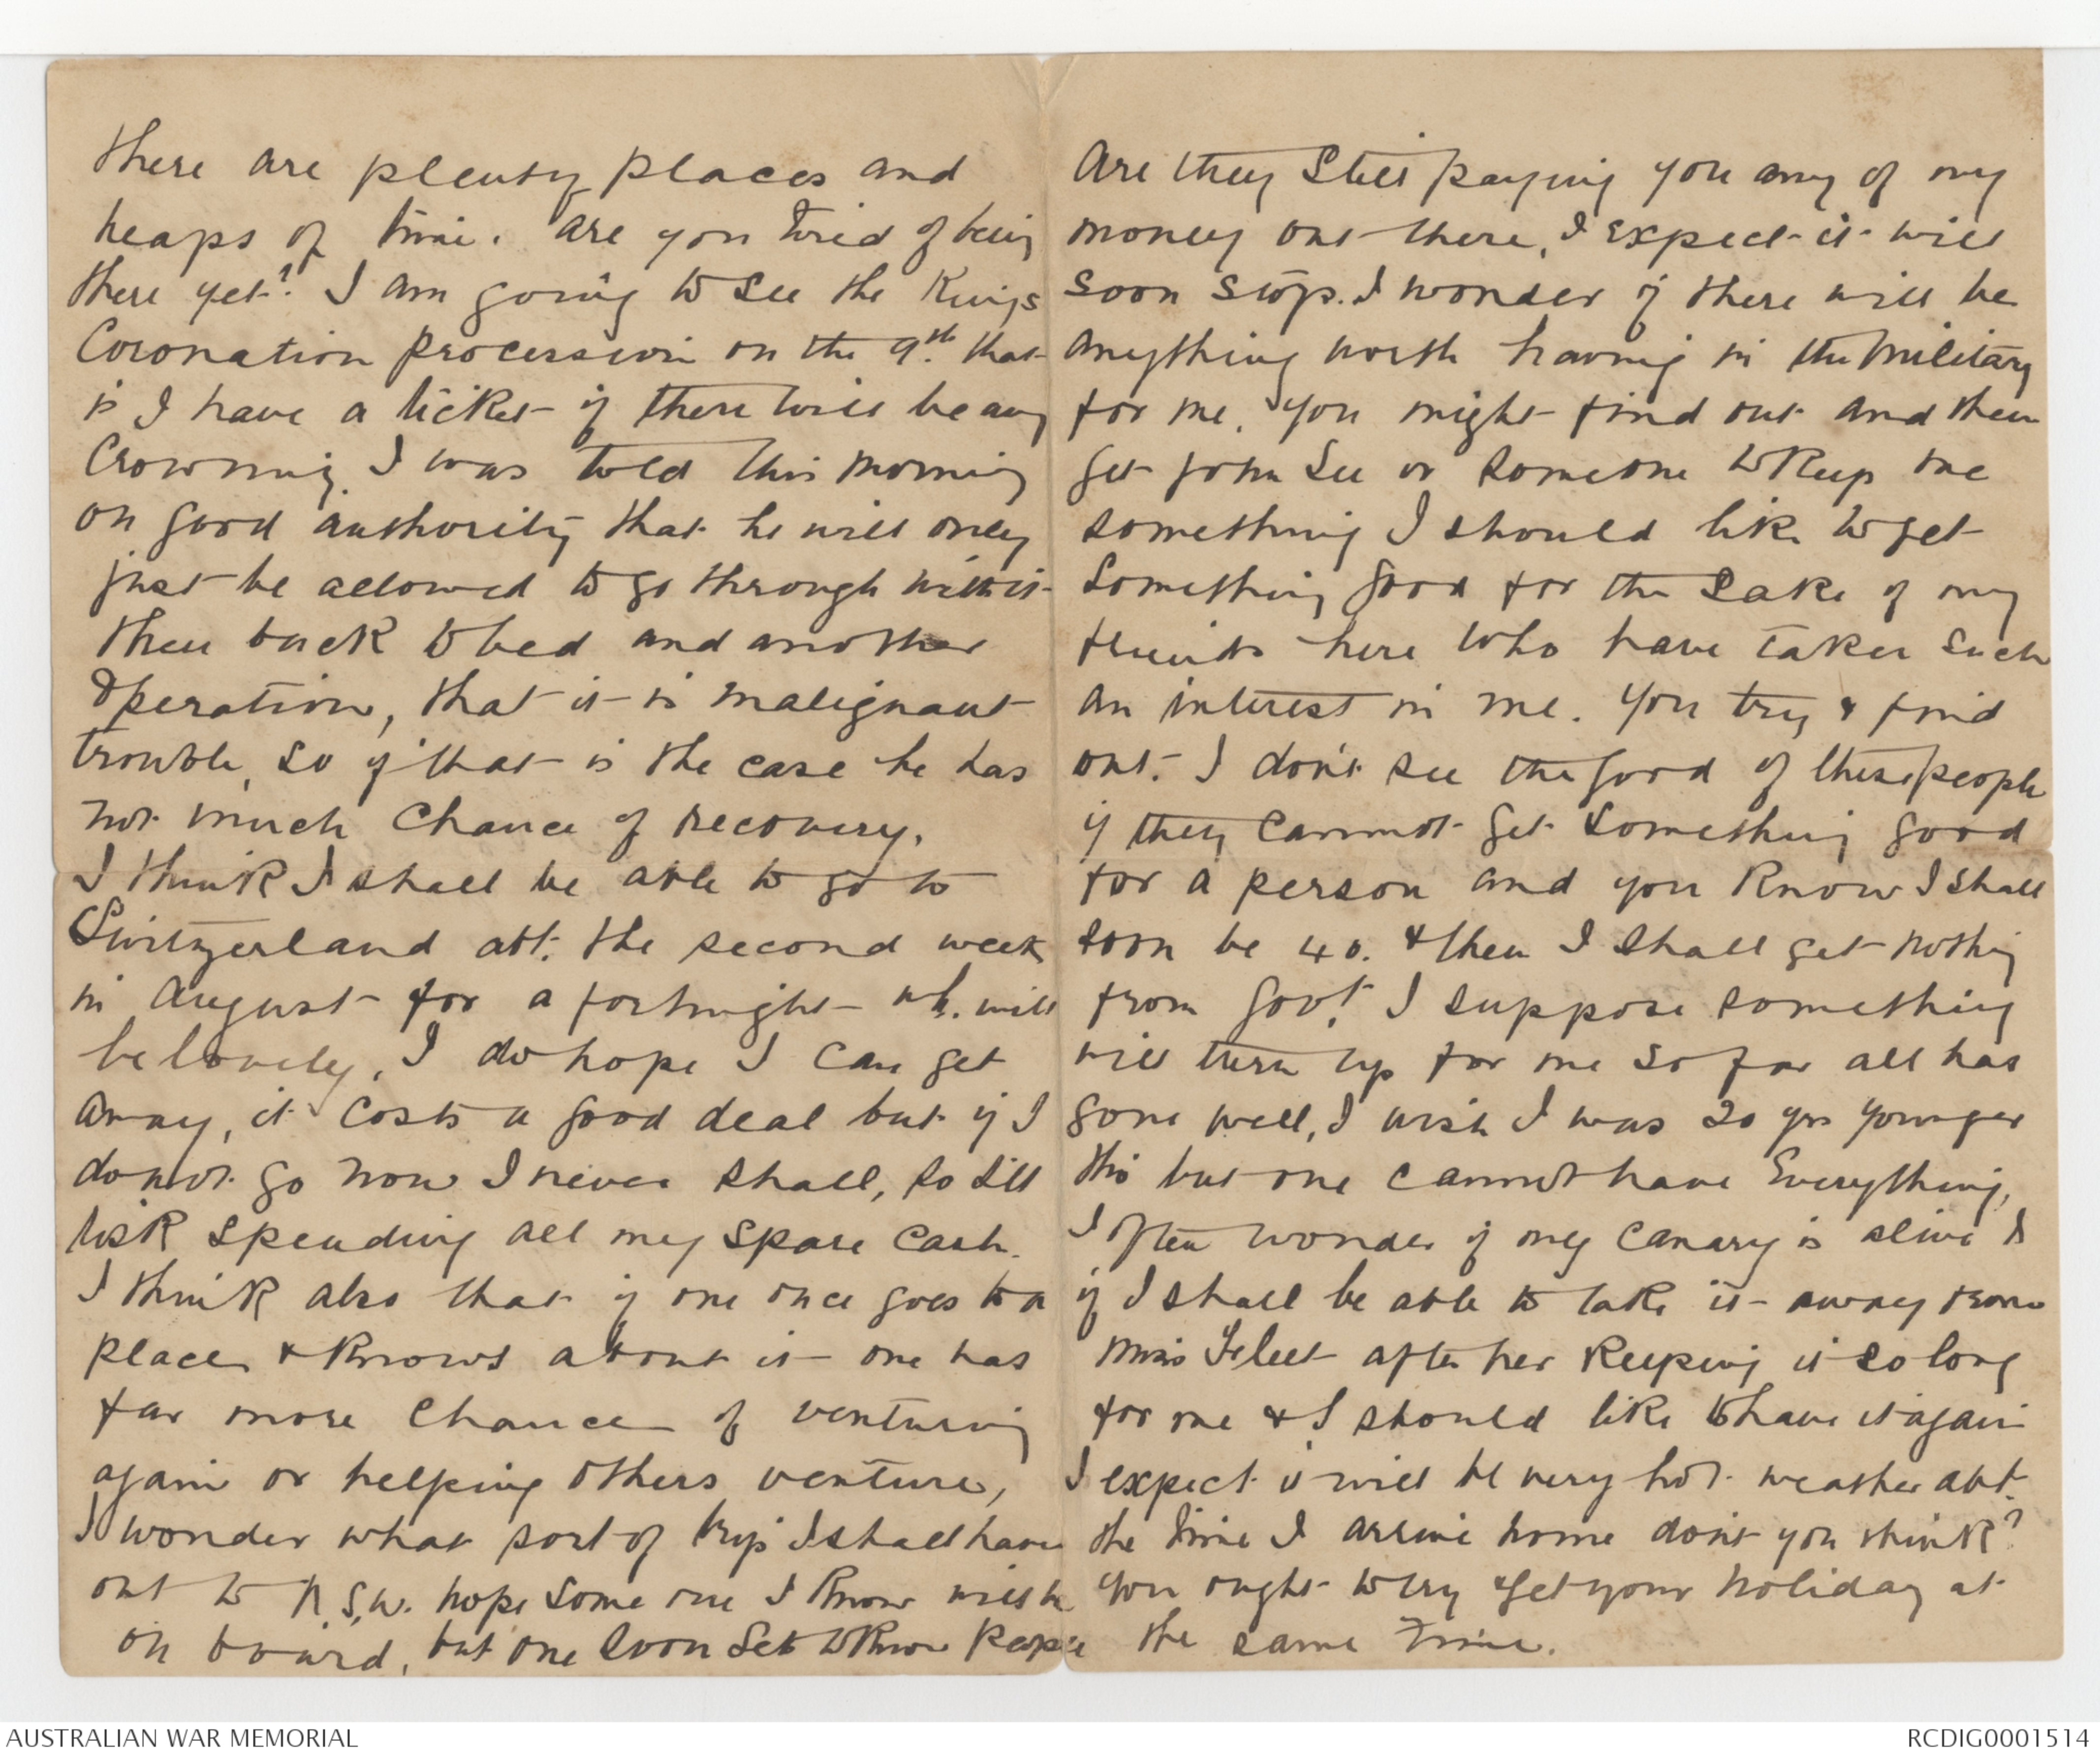 there are plenty places and
heaps of time. Are you tired of being
there yet? I am going to see the Kings
Coronation procession on the 9th. that
is I have a ticket if there will be any
Crowning. I was told this morning
on good authority that he will only
just be allowed to go through with it
then back to bed and another
Operation, that it is malignant
trouble, so if that is the case he has
not much chance of recovery.
I think I shall be able to go to
Switzerland abt. the second week
in August for a fortnight wh. will
be lovely, I do hope I can get
away, it costs a good deal but if I
do not go now I never shall, so I'll
risk spending all my spare cash.
I think also that if one once goes to a
place & knows about it one has
far more chance of venturing
again or helping others venture,
I wonder what sort of trip I shall have
out to N.S.W. hope some one I know will be
on board, but one soon gets to know people
Are they still paying you any of my
money out there, I expect it will
soon stop. I wonder if there will be
anything worth having in the Military
for me. You might find out and then
get John See or someone to keep me
something I should like to get
something good for the sake of my
friends here who have taken such
an interest in me. You try & find
out. I don't see the good of these people
if they cannot get something good
for a person and you know I shall
soon be 40. & then I shall get nothing
from Govt. I suppose something
will turn up for me so far all has
gone well, I wish I was 20 yrs younger
tho but one cannot have Everything,
I often wonder if my canary is alive &
if I shall be able to take it away from
Miss after her keeping it so long
for me & I should like to have it again
I expect it will be very hot weather abt.
the time I arrive home don't you think?
You ought to try & get your holiday at
the same time.
AUSTRALIAN WAR MEMORIAL
RCDIG0001514